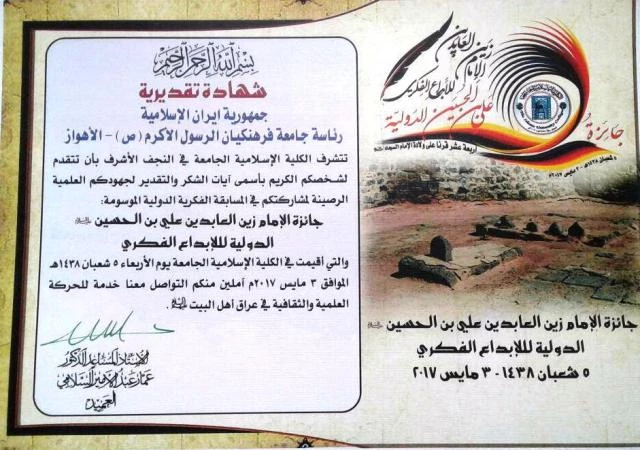 بسم الله الرحمن الرحيم
شهادة تقديرية
جمهورية ايران الإسلامية
رئاسة جامعة فرهنكيان الرسول الأكرم (ص) - الأهواز
تتشرف الكلية الإسلامية الجامعة في النجف الأشرف بأن تتقدم
لشخصكم الكريم بأسمى آيات الشكر والتقدير لجهودكم العلمية
الرصينة لمشاركتكم في المسابقة الفكرية الدولية الموسومة:
جائزة الإمام زين العابدين علي بن الحسين
الدولية لللإبداع الفكري
والتي أقيمت في الكلية الإسلامية الجامعة يوم الأربعاء ٥ شعبان ١٤٣٨هـ
الموافق ٣ مايس ٢٠١٧م آملين منكم التواصل معنا خدمة للحركة
العلمية والثقافية في عراق أهل البيت
الأستاذ المساعد الدكتور
عمار عبد الأمير السلامي
العميد
جائزة
الإمام زين العابدين
علي بن الحسين الدولية
للإبداع الفكري
أربعة عشر قرنا على ولادة الإمام السجاد
٥ شعبان ١٤٣٨هـ - ٣ مايس ٢٠١٧م
جائزة الإمام زين العابدين علي بن الحسين
الدولية لللإبداع الفكري
٥ شعبان ١٤٣٨ - ٣ مايس ٢٠١٧